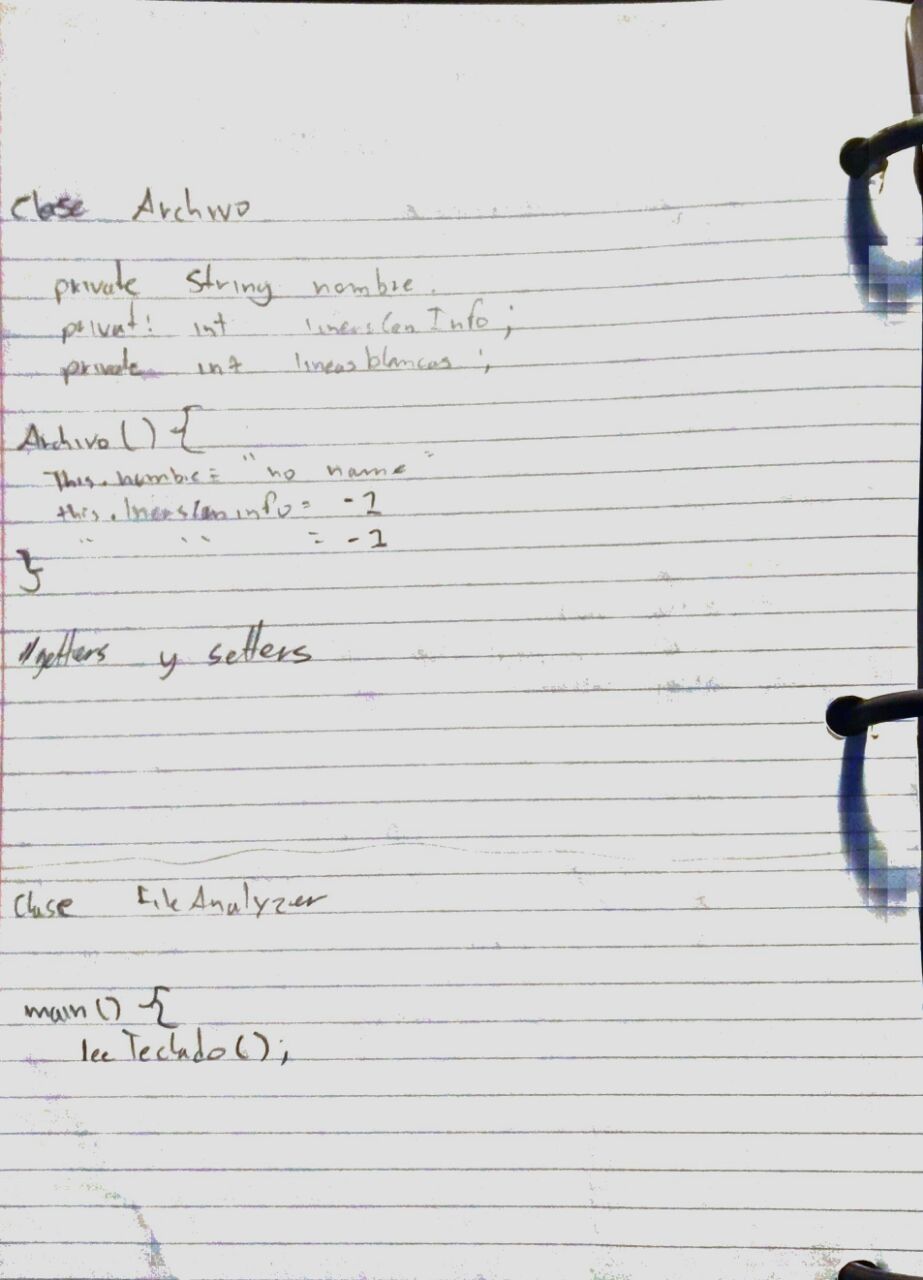 Clase Archivo
private String nombre.
privat: int lineasConInfo;
private int lineasblancas;
Archivo() {
This.nombre= "no name"
this.lineasConinfo= -1
" " = -1
}
//getters y setters
Clase FileAnalyzer
main() {
leeTeclado();